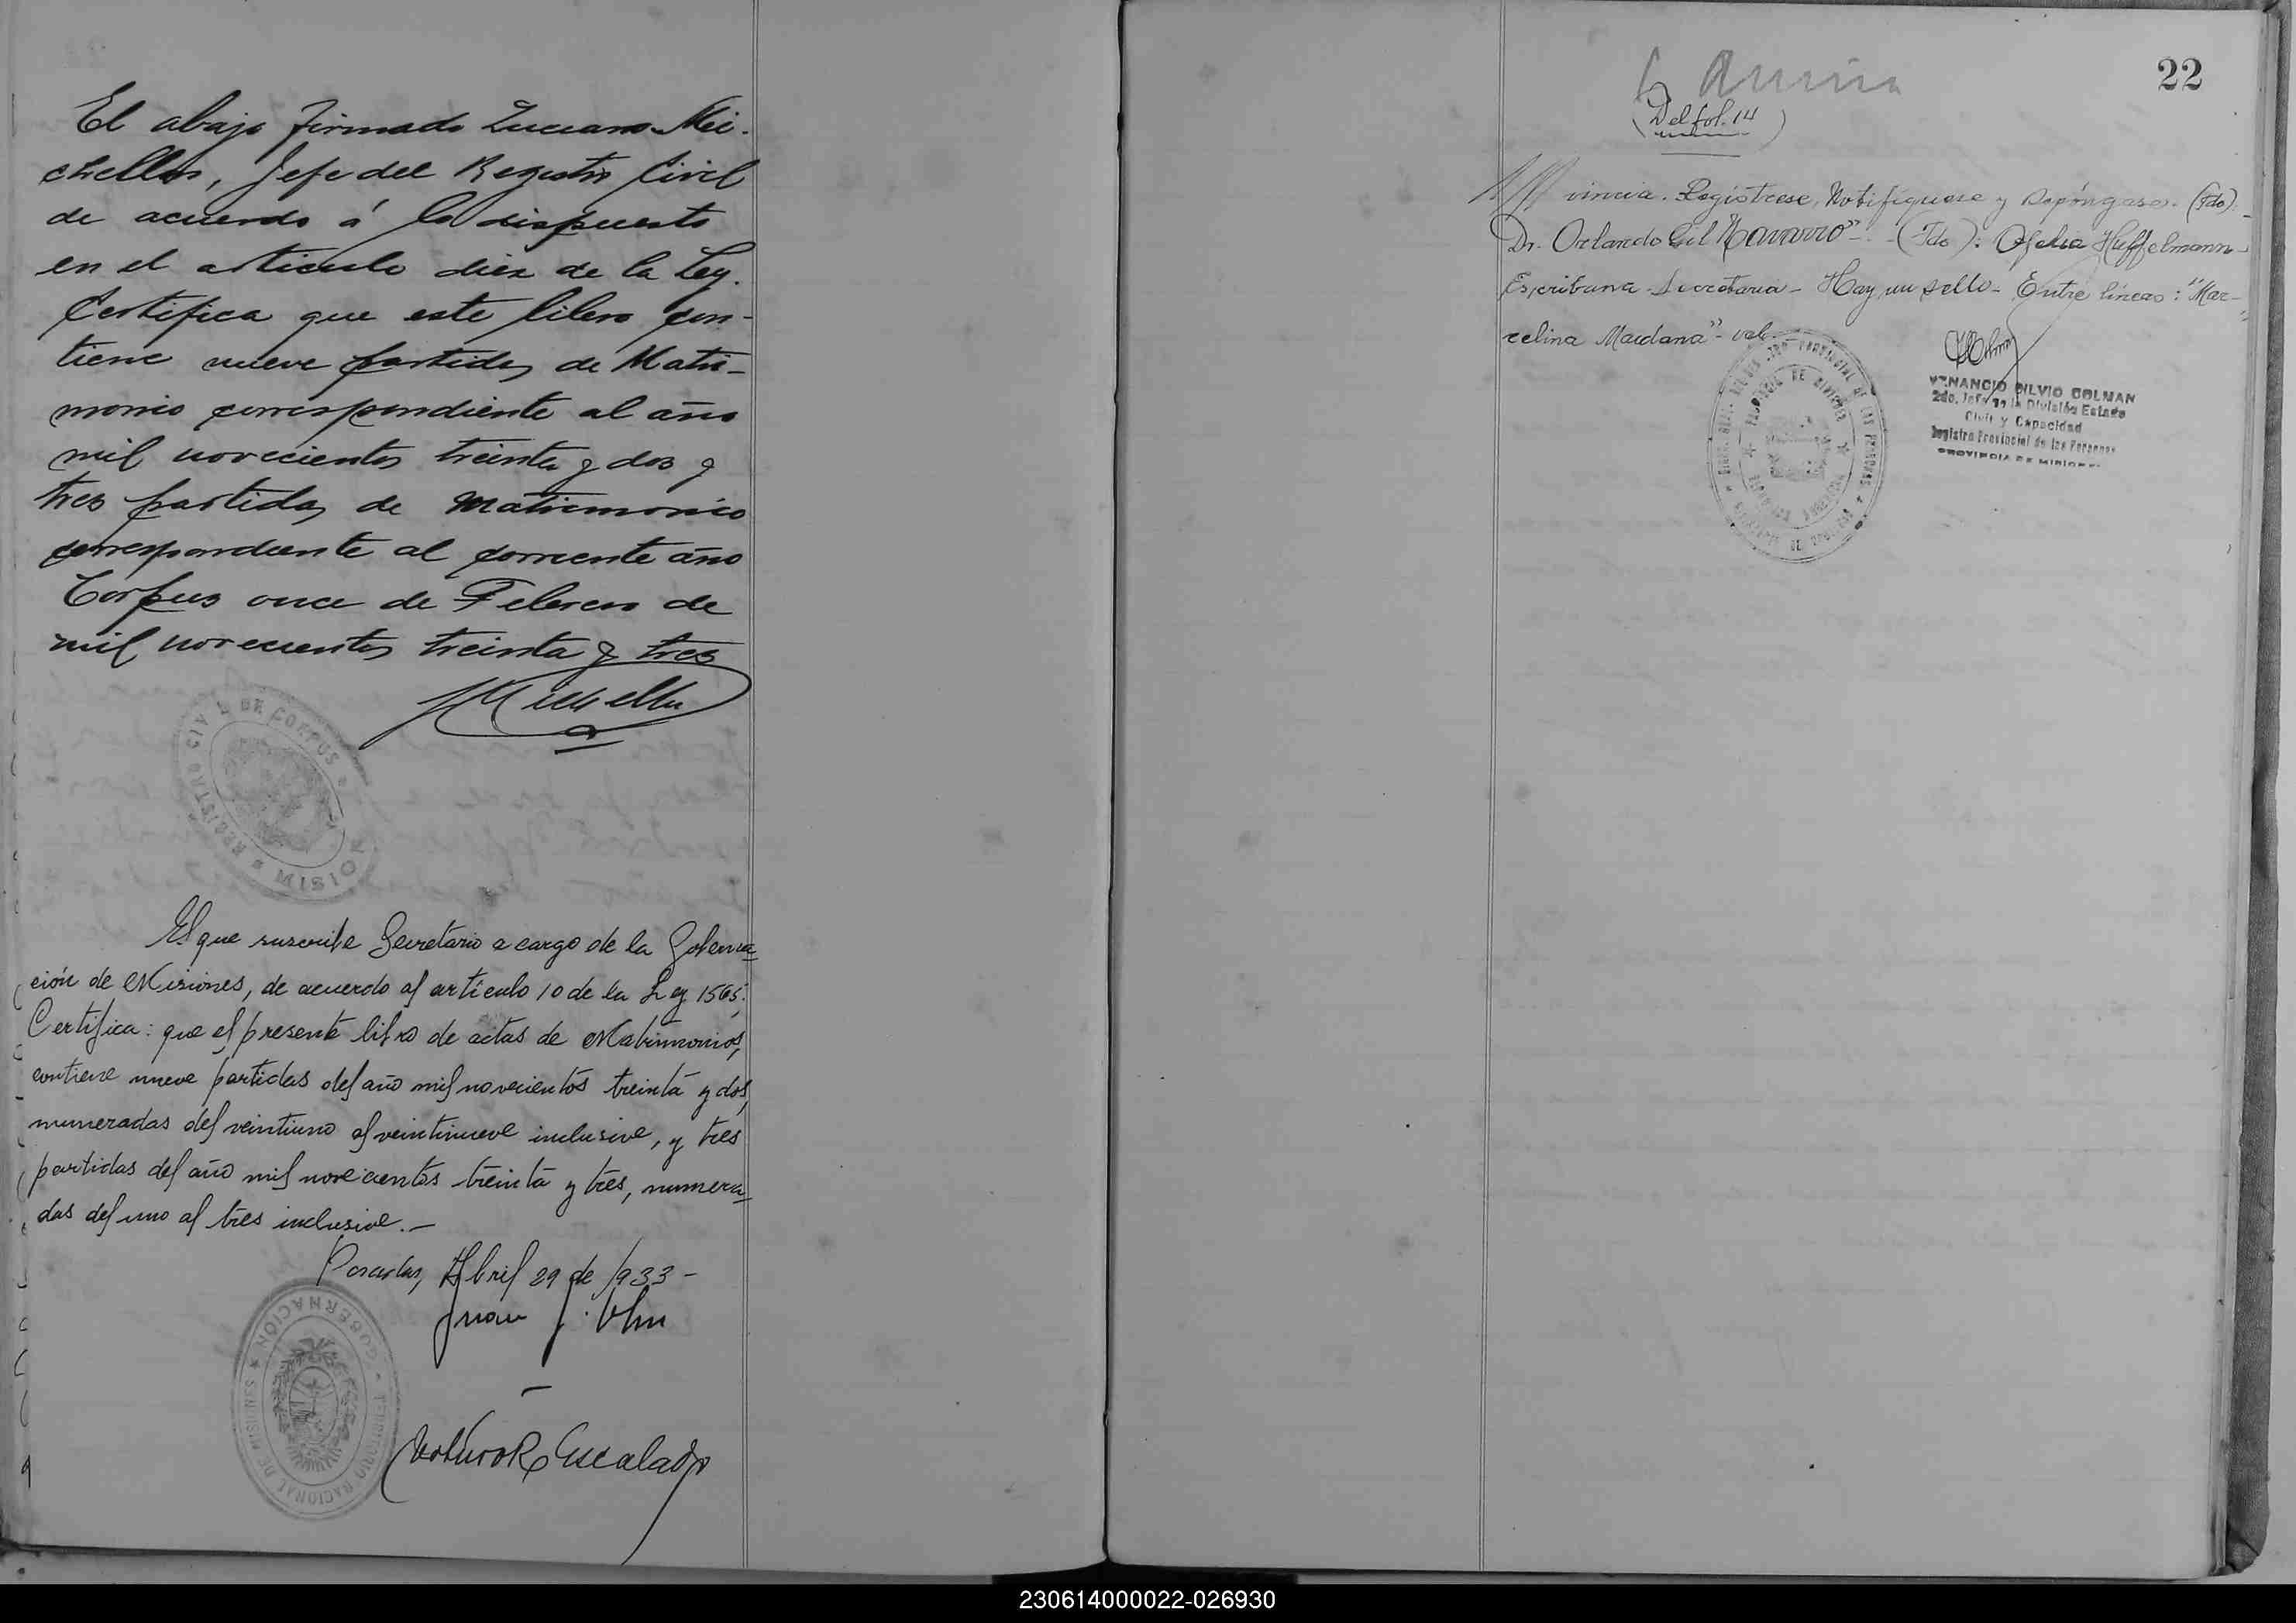 El abajo firmado Luciano Mi-
chellon, Jefe del Registro Civil
de acuerdo á lo dispuesto
en el articulo diez de la Ley.
Certifica que este libro con-
tiene nueve partidas de Matri-
monio correspondiente al año
mil novecientos treinta y dos y
tres partidas de Matrimonio
correspondiente al corriente año
Corpus once de Febrero de
mil novecientos treinta y tres
REGISTRO CIVIL DE CORPUS
El que suscribe Secretario a cargo de la Goberna-
ción de Misiones, de acuerdo al artículo 10 de la Ley 1565.
Certifica: que el presente libro de actas de Matrimonios,
contiene nueve partidas del año mil novecientos treinta y dos,
numeradas del veintiuno al veintinueve inclusive, y tres
partidas del año mil novecientos treinta y tres, numera-
das del uno al tres inclusive.-
Posadas, Abril 29 de 1933-
GOBERNACIÓN
TERRITORIO NACIONAL DE MISIONES
22
(Del fol. 14)
vincia. Regístrese, Notifíquese y Repóngase. (Fdo):
Dr. Orlando Gil Navarro"-. (Fdo): Ofelia Huffelmann-
Escribana-Secretaria- Hay un sello- Entre líneas: "Mar-
celina Maidana"- vale
VENANCIO SILVIO COLMAN
2do. Jefe de la División Estado
Civil y Capacidad
Registro Provincial de las Personas
PROVINCIA DE MISIONES
230614000022-026930